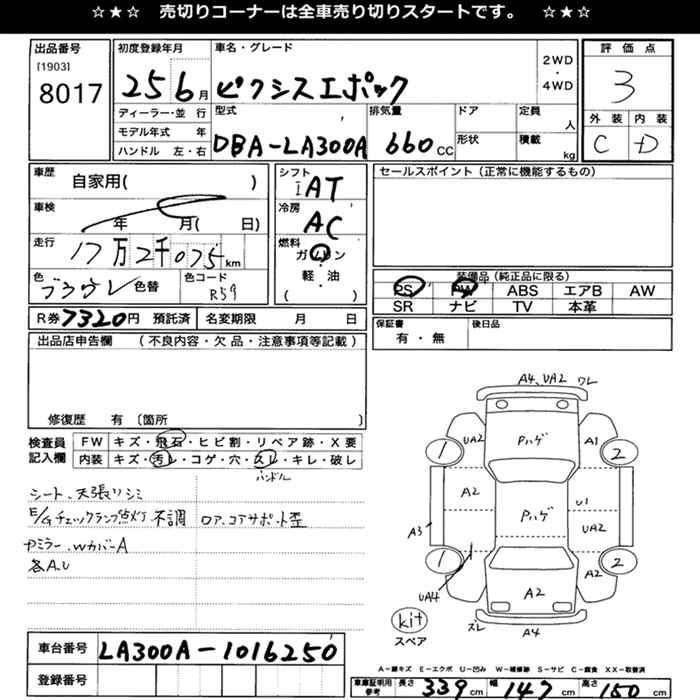 ☆★☆ 売切りコーナーは全車売り切りスタートです。 ☆★☆
出品番号
[1903]
8017
初度登録年月
25 6月
ディーラー・並 行
モデル年式 年
ハンドル 左・右
車名・グレード
ピクシスエポック
2WD
・
4WD
型式
DBA-LA300A
排気量
660cc
ドア
形状
定員
人
積載
kg
評価点
3
外装 内装
C D
車歴
自家用( )
車検
年 月( 日)
走行
17万2千075km
色
ブラウン
色替
色コード
R59
シフト
IAT
冷房
AC
燃料
ガソリン
・
軽・油
( )
セールスポイント(正常に機能するもの)
装備品(純正品に限る)
PS PW ABS エアB AW
SR ナビ TV 本革
R券7320円 預託済 名変期限 月 日
保証書
有・無
後日品
出品店申告欄 (不良内容・欠品・注意事項等記載)
修復歴 有〔箇所
検査員
記入欄
FW キズ・飛石・ヒビ割・リペア跡・X要
内装 キズ・汚レ・コゲ・穴・スレ・キレ・破レ
ハンドル
シート、天張リシミ
E/gチェックランプ点灯 不調 ロア、コアサポート歪
ヤミラー、WカバーA
各A.U
車台番号
LA300A-1016250
登録番号
A4、UA2 ワレ
1 UA2 Pハゲ A1 2
A2 Pハゲ U1
A3 UA2
1 UA4 A2 A2 2
kit
スペア
ズレ A4
A-線キズ E-エクボ U-凹み W-補修跡 S-サビ C-腐食 XX-取替済
車庫証明用
参考
長さ 339cm 幅 147cm 高さ 150cm